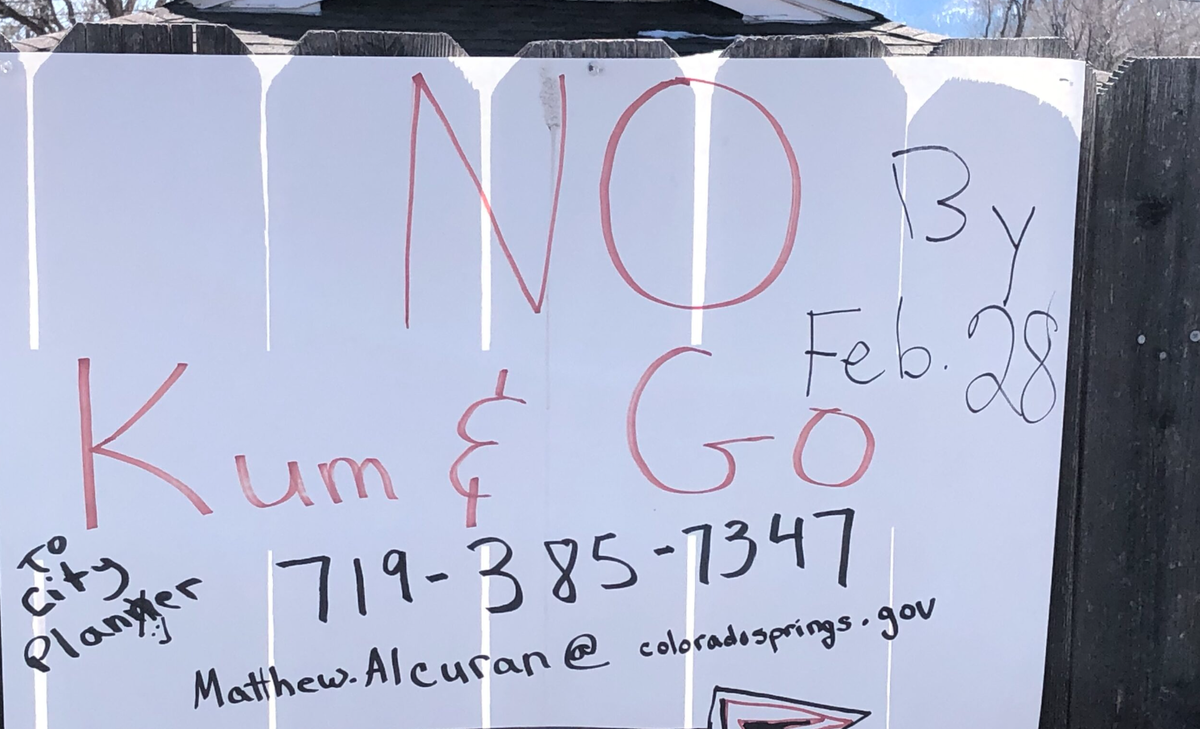 NO
By
Feb. 28
Kum & Go
To
City
Planner
719-385-7347
Matthew.Alcuran@coloradosprings.gov